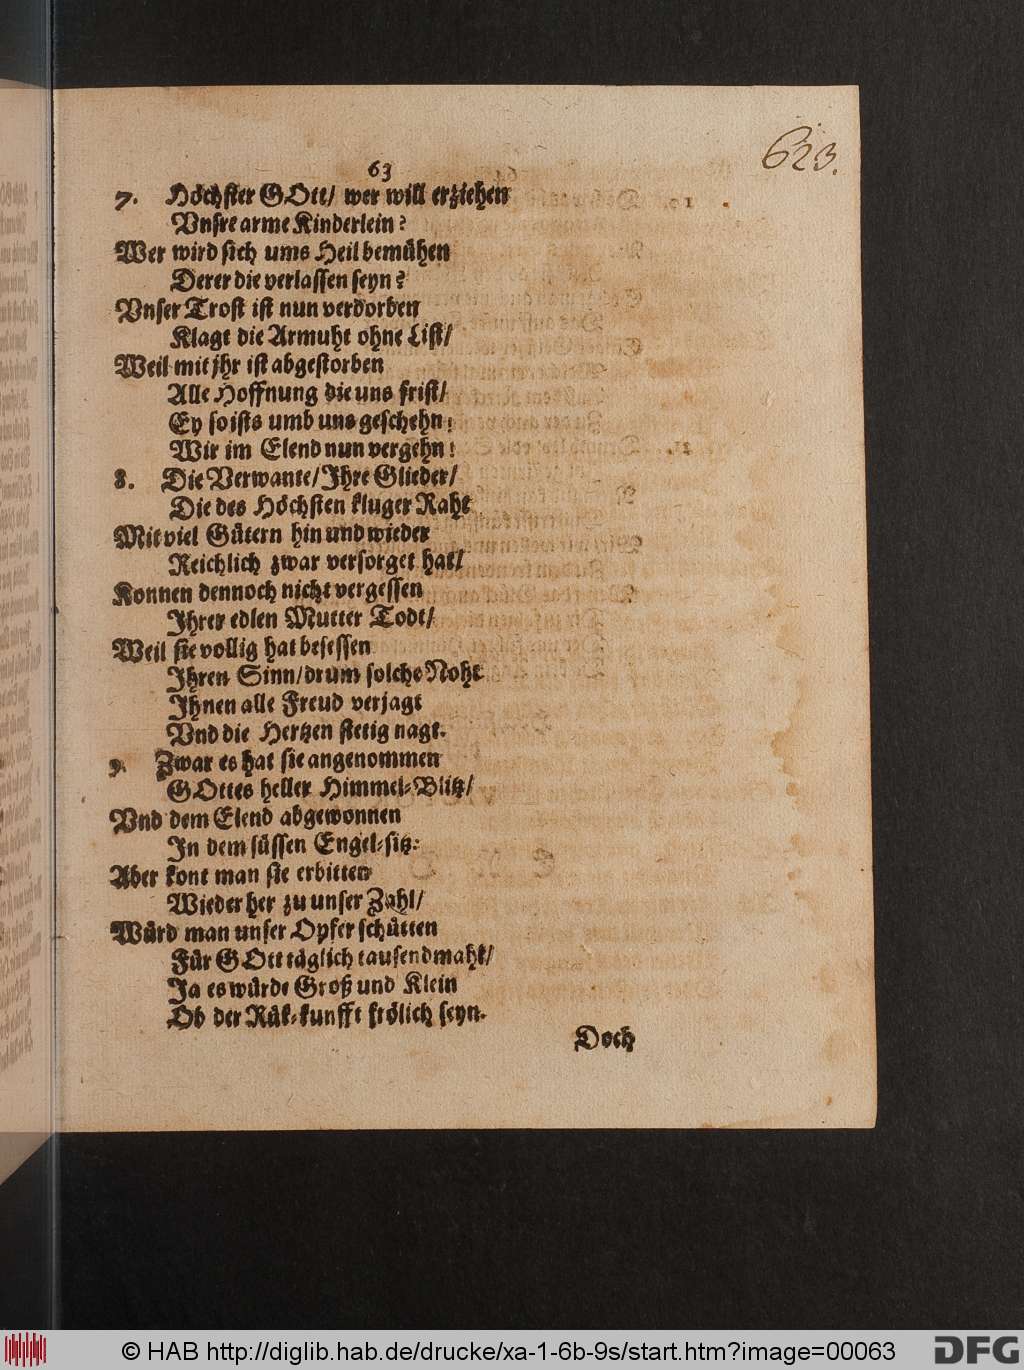 623.
63
7. Höchster GOtt/ wer will erziehen
Vnsre arme Kinderlein?
Wer wird sich ums Heil bemühen
Derer die verlassen seyn?
Vnser Trost ist nun verdorben
Klagt die Armuht ohne List/
Weil mit jhr ist abgestorben
Alle Hoffnung die uns frist/
Ey so ists umb uns geschehn!
Wir im Elend nun vergehn!
8. Die Verwante/ Ihre Glieder/
Die des Höchsten kluger Raht
Mit viel Gütern hin und wieder
Reichlich zwar versorget hat/
Konnen dennoch nicht vergessen
Ihrer edlen Mutter Todt/
Weil sie vollig hat besessen
Ihren Sinn/ drum solche Noht
Ihnen alle Freud verjagt
Vnd die Hertzen stetig nagt.
9. Zwar es hat sie angenommen
GOttes heller Himmel-Blitz/
Vnd dem Elend abgewonnen
In dem süssen Engel-sitz:
Aber kont man sie erbitten
Wieder her zu unser Zahl/
Würd man unser Opfer schütten
Für GOtt täglich tausendmahl/
Ja es würde Groß und Klein
Ob der Rük-kunfft frölich seyn.
Doch
© HAB http://diglib.hab.de/drucke/xa-1-6b-9s/start.htm?image=00063
DFG